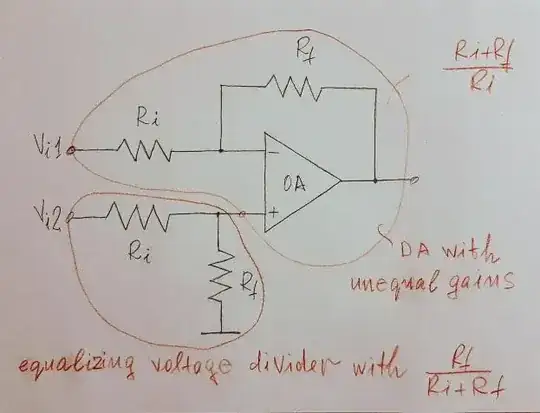 Rf
Ri+Rf
Ri
Ri
Vi1
-
OA
Vi2
+
Ri
Rf
DA with
unequal gains
equalizing voltage divider with Rf
Ri+Rf